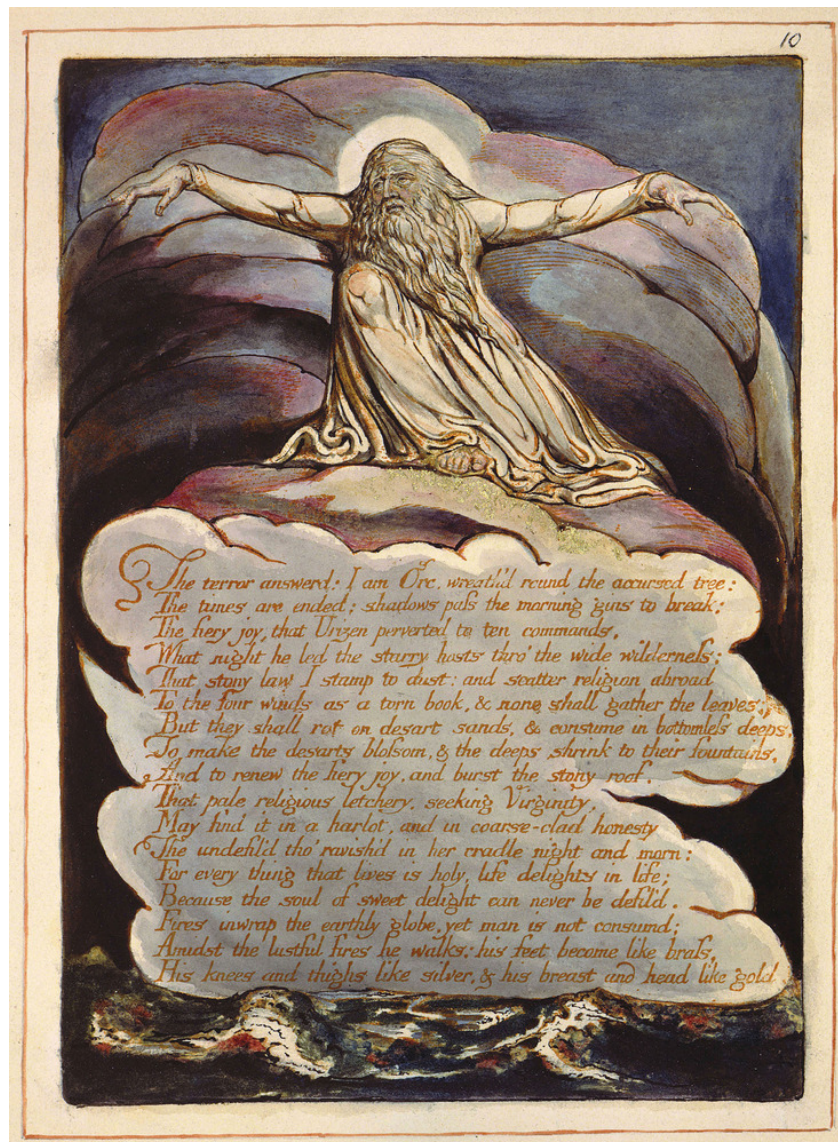 10
The terror answerd: I am Orc, wreath'd round the accursed tree:
The times are ended; shadows pass the morning gins to break;
The fiery joy, that Urizen perverted to ten commands,
What night he led the starry hosts thro' the wide wilderness;
That stony law I stamp to dust: and scatter religion abroad
To the four winds as a torn book, & none shall gather the leaves;
But they shall rot on desart sands, & consume in bottomless deeps,
To make the desarts blossom, & the deeps shrink to their fountains,
And to renew the fiery joy, and burst the stony roof.
That pale religious letchery, seeking Virginity,
May find it in a harlot, and in coarse-clad honesty
The undefil'd tho' ravish'd in her cradle night and morn:
For every thing that lives is holy, life delights in life;
Because the soul of sweet delight can never be defil'd.
Fires inwrap the earthly globe, yet man is not consumd;
Amidst the lustful fires he walks: his feet become like brass,
His knees and thighs like silver, & his breast and head like gold.